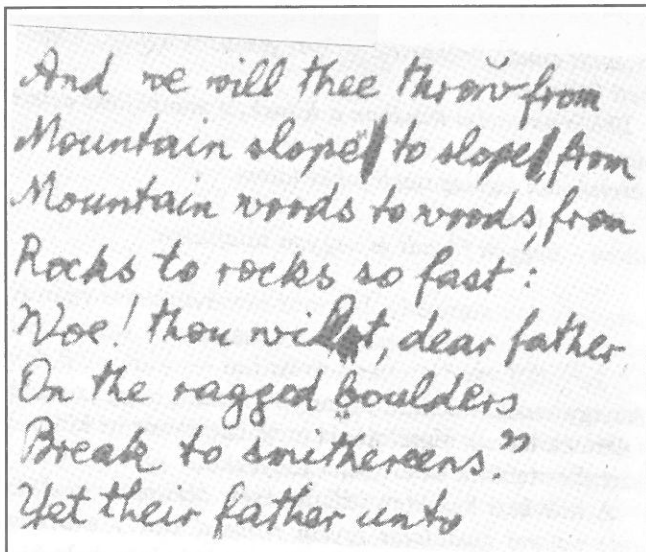 And we will thee throw from
Mountain slope to slope, from
Mountain woods to woods, from
Rocks to rocks so fast:
Woe! thou wilt, dear father
On the ragged boulders
Break to smithereens."
Yet their father unto